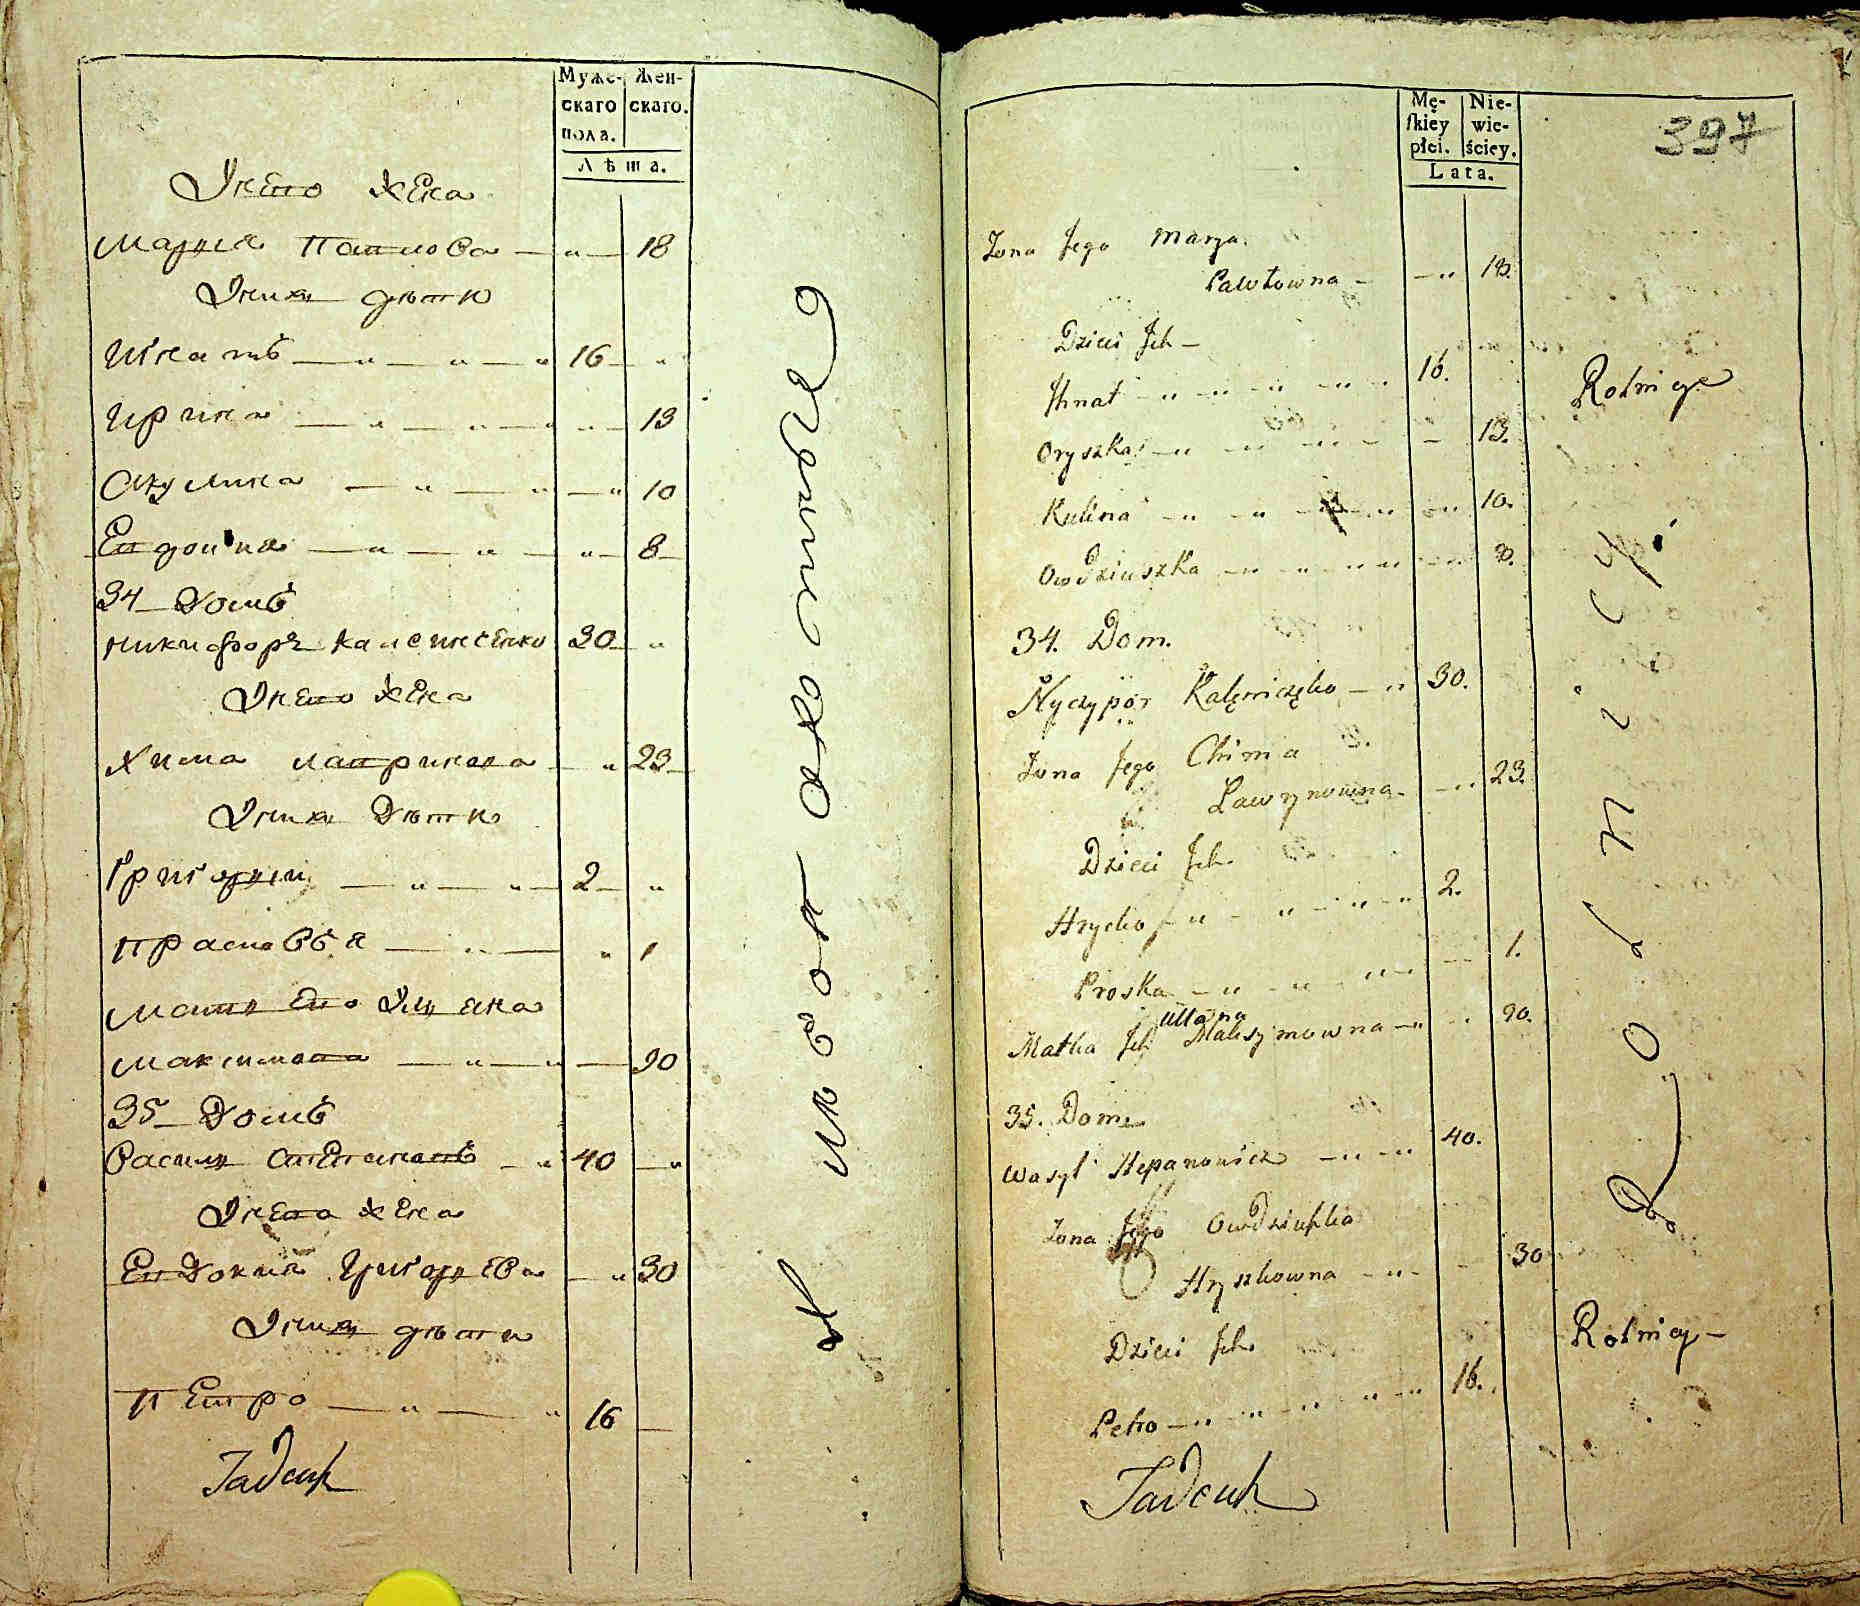 Муже-
скаго
пола.
Жен-
скаго.
Лѣта.
У нево жена
Мария Павлова 18
У них дѣти
Игнатъ 16
Ирина 13
Акулина 10
Евдокия 8
34 Домъ
Никифоръ Калениченко 30
У нево жена
Хима Лавринова 23
У них Дѣти
Григорий 2
Прасковья 1
Мать Ево Ульяна
Максимова 90
35 Домъ
Василь Степановъ 40
У нево жена
Евдокия Григорьева 30
У них дѣти
Петро 16
Tadeusz
Mę-
skiey
płci.
Nie-
wie-
ściey.
Lata.
397
Żona Jego Marya
Pawłowna 18.
Dzieci Ich
Ihnat 16.
Rolnicy
Oryszka 13.
Kulina 10.
Owdziuszka 8.
34. Dom.
Nyczypor Kaleniczeńko 30.
Żona Jego Chima
Ławrynowna 23.
Dzieci Ich
Hryćko 2.
Proska 1.
Ullana
Matka Ich Maksymowna 90.
35. Dom
Wasyl Stepanowicz 40.
Żona Jego Owdziuszka
Hryszkowna 30
Dzieci Ich
Rolnicy
Petro 16.
Rolnicy